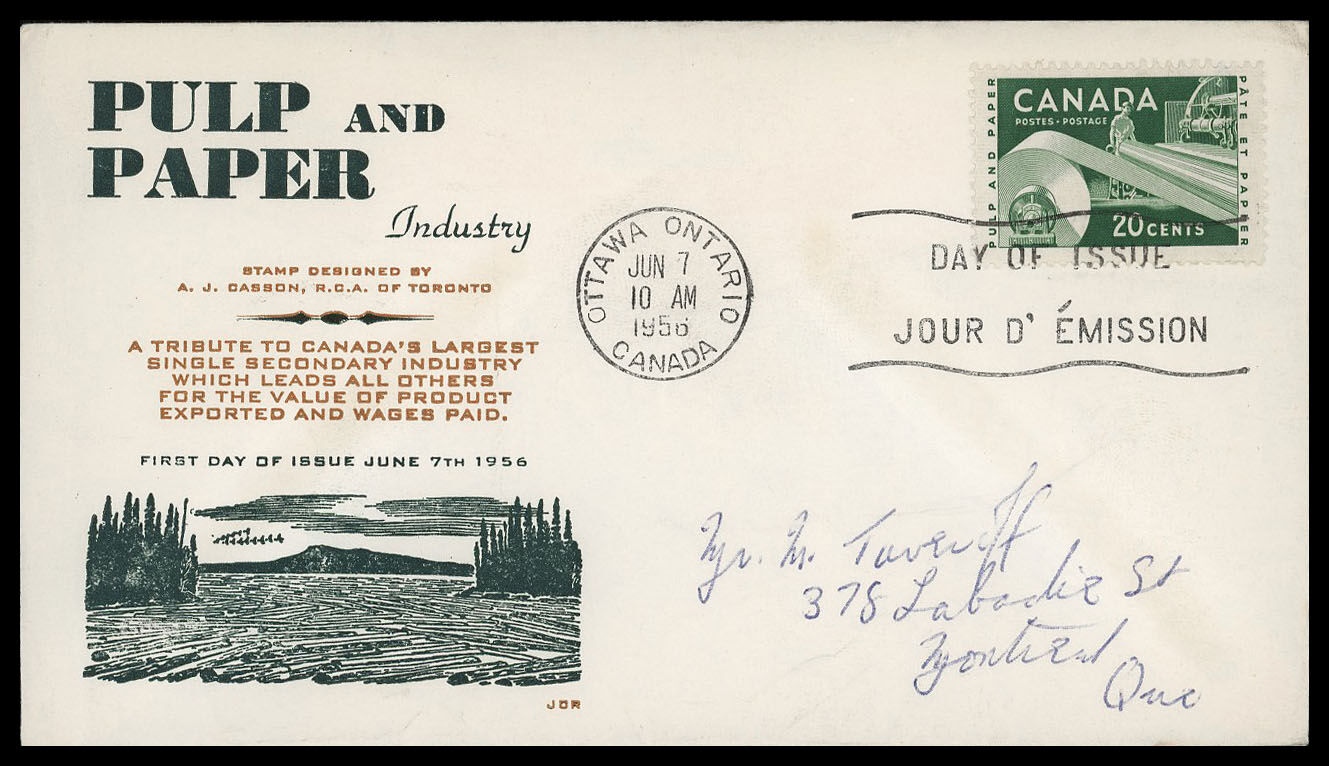 PULP AND
PAPER
Industry
STAMP DESIGNED BY
A. J. CASSON, R.C.A. OF TORONTO
A TRIBUTE TO CANADA'S LARGEST
SINGLE SECONDARY INDUSTRY
WHICH LEADS ALL OTHERS
FOR THE VALUE OF PRODUCT
EXPORTED AND WAGES PAID.
FIRST DAY OF ISSUE JUNE 7TH 1956
JCR
OTTAWA ONTARIO
JUN 7
10 AM
1956
CANADA
PULP AND PAPER
CANADA
POSTES · POSTAGE
20 CENTS
PÂTE ET PAPIER
DAY OF ISSUE
JOUR D' ÉMISSION
Mr. M. Taveroff
378 Labadie St
Montreal
Que